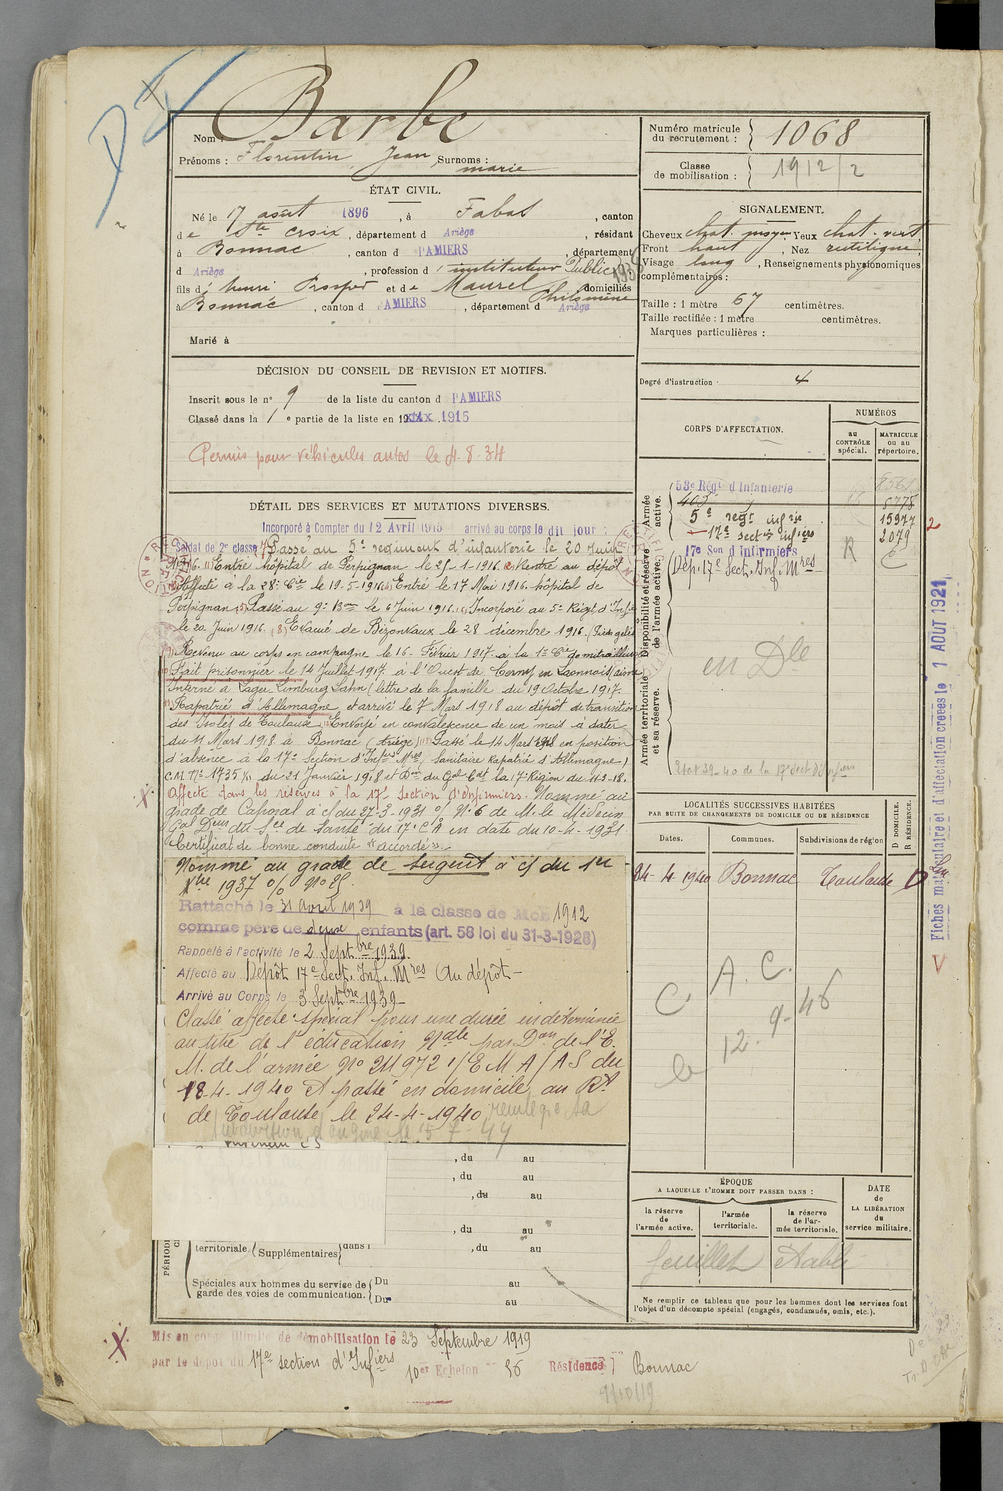 Nom : Barbe
Prénoms : Florentin Jean Surnoms :
marie
ÉTAT CIVIL.
Né le 17 août 1896, à Fabas, canton
de Ste Croix, département d Ariège, résidant
à Bonnac, canton d PAMIERS, département
d Ariège, profession d'instituteur Public
fils d'henri Prosper et de Maurel Philomène domiciliés
à Bonnac, canton d PAMIERS, département d Ariège
Marié à
DÉCISION DU CONSEIL DE REVISION ET MOTIFS.
Inscrit sous le n° 9 de la liste du canton d PAMIERS
Classé dans la 1e partie de la liste en 1915
Permis pour véhicules autos le 4.8.34
DÉTAIL DES SERVICES ET MUTATIONS DIVERSES.
Incorporé à Compter du 12 Avril 1915 arrivé au corps le dit jour
Soldat de 2e classe Passé au 5e regiment d'infanterie le 20 Juin
1916. Entré hôpital de Perpignan le 25-1-1916. Rentré au dépôt
Affecté à la 28e Cie le 19-5-1916. Entré le 17 Mai 1916. hôpital de
Perpignan. Passé au 9e Bon le 6 Juin 1916. Incorporé au 5e Régt d'Infie
le 20 Juin 1916. Evacué de Bezonvaux le 28 décembre 1916. Pieds gelés
Revenu au corps en campagne le 16 Février 1917 à la 1e Cie de mitrailleuses
Fait prisonnier le 14 Juillet 1917 à l'Ouest de Cerny en Laonnois (aisne)
Interné à Lager Limburg Lahn (lettre de la famille du 19 Octobre 1917.
Rapatrié d'Allemagne et arrivé le 7 Mars 1918 au dépôt de transition
des Isolés de Toulouse. Envoyé en convalescence de un mois à dater
du 11 Mars 1918 à Bonnac (Ariège) Passé le 14 Mars 1918 en position
d'absence à la 17e Section d'Infres Mres (Sanitaire Rapatrié d'Allemagne)
C.M. N° 1735 du 21 Janvier 1918 et Don du Gal Cdt la 17e Région du 11-3-18.
Affecté dans les réserves à la 17e Section d'Infirmiers. Nommé au
grade de Caporal à c/ du 27-3-1931 O/ N° 6 de M. le Médecin
Gal Deur du Sce de Santé du 17e C.A en date du 10-4-1931
Certificat de bonne conduite "accordé".
Nommé au grade de Sergent à c/ du 1er
Xbre 1937 O/
Rattaché le 31 Avril 1939 à la classe de Mob 1912
comme père de deux enfants (art. 58 loi du 31-3-1928)
Rappelé à l'activité le 2 Septbre 1939
Affecté au Dépôt 17e Sect. Inf. Mres Au dépôt
Arrivé au Corps le 3 Septbre 1939
Classé affecté spécial pour une durée indéterminée
au titre de l'éducation Nale par Don de l'E.
M. de l'armée N° 211972 1/E M A/AS du
18-4-1940 Et passé en domicile au Rt
de Toulouse le 24-4-1940
, du au
, du au
, du au
, du au
territoriale. (Supplémentaires) dans l , du au
Spéciales aux hommes du service de garde des voies de communication. Du au
Du au
Mis en congé illimité de démobilisation le 23 Septembre 1919
par le dépôt du 17e section d'Infiers 10er Echelon 56 Résidence Bonnac
9/10/19
Numéro matricule du recrutement : 1068
Classe de mobilisation : 1912/2
SIGNALEMENT.
Cheveux chat. moyen Yeux chat. vert
Front haut, Nez rectiligne
Visage long, Renseignements physionomiques
complémentaires :
Taille : 1 mètre 67 centimètres.
Taille rectifiée : 1 mètre centimètres.
Marques particulières :
Degré d'instruction : 4
CORPS D'AFFECTATION.
NUMÉROS
au CONTRÔLE spécial.
MATRICULE ou au répertoire.
Armée active.
Disponibilité et réserve de l'armée active.
Armée territoriale et sa réserve.
53e Régt d'Infanterie
403e 5778
5e regt infrie 15977
17e sect infiers 2079
17e Son d'Infirmiers
Dép. 17e Sect. Inf. Mres R C
en Dle
Etat 39-40 de la 17e Sect. d'Infiers
LOCALITÉS SUCCESSIVES HABITÉES
PAR SUITE DE CHANGEMENTS DE DOMICILE OU DE RÉSIDENCE
Dates. Communes. Subdivisions de région D DOMICILE. R RÉSIDENCE.
24-4-1940 Bonnac Toulouse D
C A. C.
le 12-9-46
ÉPOQUE
A LAQUELLE L'HOMME DOIT PASSER DANS :
la réserve de l'armée active.
l'armée territoriale.
la réserve de l'armée territoriale.
DATE de LA LIBÉRATION du service militaire.
feuillet établi
Ne remplir ce tableau que pour les hommes dont les services font
l'objet d'un décompte spécial (engagés, condamnés, omis, etc.).
Fiches matriculaire et d'affectation créées le 1 AOUT 1921